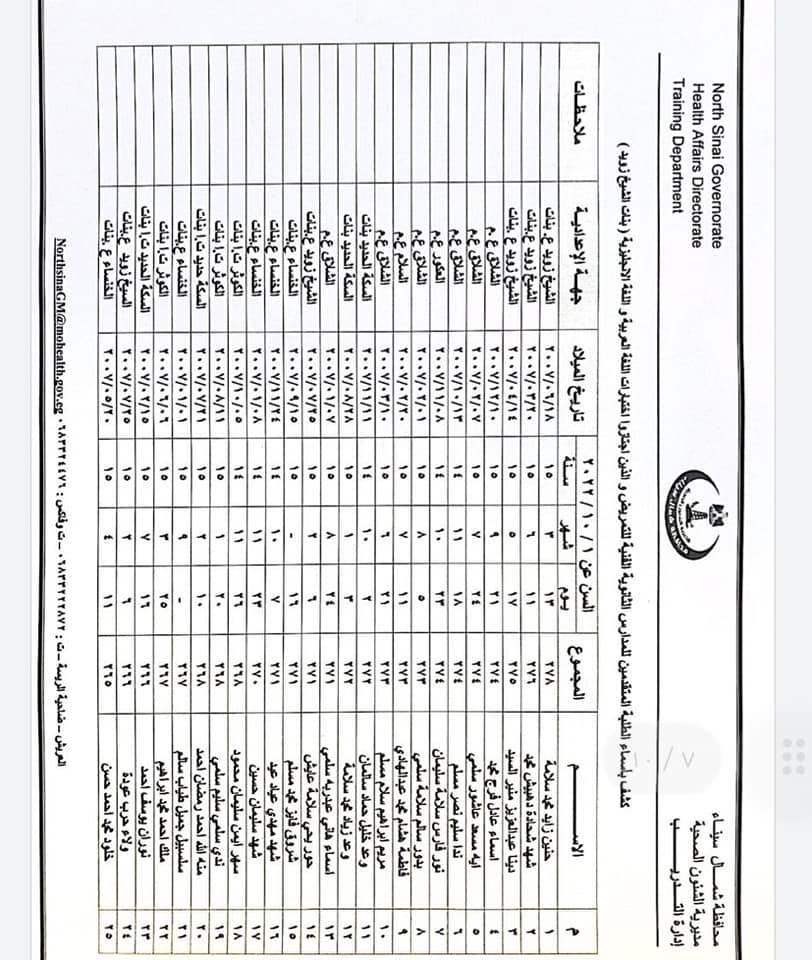 محافظة شمال سيناء
مديرية الشئون الصحية
إدارة التدريب
North Sinai Governorate
Health Affairs Directorate
Training Department
كشف باسماء الطلبة المتقدمين للمدارس الثانوية الفنية للتمريض و الذين اجتازوا اختبارات اللغة العربية و اللغة الانجليزية ( بنات الشيخ زويد )
م الاســـــم المجموع السن عن ٢٠٢٢/١٠/١ تاريخ الميلاد جهة الإعدادية ملاحظات
يوم شهر سنة
١ حنين زايد محمد سلامة ٢٧٨ ١٣ ٣ ١٥ ٢٠٠٧/٠٦/١٨ الشيخ زويد ع. بنات
٢ شهد شحادة دهيش محمد ٢٧٦ ١١ ٦ ١٥ ٢٠٠٧/٠٣/٢٠ الشيخ زويد ع.بنات
٣ دينا عبدالعزيز منير السيد ٢٧٥ ١٧ ٥ ١٥ ٢٠٠٧/٠٤/١٤ الشيخ زويد ع .بنات
٤ اسماء عادل فرج محمد ٢٧٤ ٢١ ٩ ١٥ الشلاق ع .م
٥ ايه مسعد عاشور سلمي ٢٧٤ ٢٤ ٧ ١٥ ٢٠٠٧/٠٢/٠٧ الشلاق ع.م
٦ ندا سليم نصر مسلم ٢٧٤ ١٨ ١١ ١٤ ٢٠٠٧/١٠/١٣ الشلاق ع.م
٧ نور فارس سلامة سليمان ٢٧٤ ٢٣ ١٠ ١٤ ٢٠٠٧/١١/٠٨ العكور ع.م
٨ بدور سالم سلامة سلمي ٢٧٣ ٥ ٨ ١٥ الشلاق ع.م
٩ فاطمة هشام محمد عبدالهادي ٢٧٣ ١١ ٧ ١٥ ٢٠٠٧/٠٢/٢٠ السلام ع.م
١٠ مريم ابراهيم سلام مسلم ٢٧٣ ٢١ ٦ ١٥ ٢٠٠٧/٠٣/١٠ الشلاق ع.م
١١ وعد خليل حماد سالمان ٢٧٢ ١٠ ١٤ ٢٠٠٧/١١/١١ السكة الحديد بنات
١٢ وعد زياد محمد سلامة ٢٧٢ ٣ ١ ١٥ ٢٠٠٧/٠٨/٢٨ السكة الحديد بنات
١٣ اسماء هاني عبدربه سلمي ٢٧١ ٢٤ ٨ ١٥ ٢٠٠٧/٠١/٠٧ الشلاق ع.م
١٤ حور يحي سلامة عايش ٢٧١ ٦ ٢ ١٥ ٢٠٠٧/٠٧/٢٥ الشيخ زويد ع.بنات
١٥ شروق فايز محمد مسلم ٢٧١ ١٦ - ١٥ ٢٠٠٧/٠٩/١٥ الخنساء ع.بنات
١٦ شهد مهدي عياد عيد ٢٧١ ٧ ١٠ ١٤ ٢٠٠٧/١١/٢٤ الخنساء ع.بنات
١٧ شهد سليمان حسين ٢٧٠ ٢٣ ١١ ١٤ ٢٠٠٧/١٠/٠٨ الخنساء ع.بنات
١٨ سهر ايمن سليمان محمود ٢٦٨ ٢٦ ١١ ١٤ ٢٠٠٧/١٠/٠٥ الكوثر ت.ا بنات
١٩ ندي سلمي سليم سلمي ٢٦٨ ٢٠ ١ ١٥ ٢٠٠٧/٠٨/١١ الكوثر ت.ا بنات
٢٠ منه الله احمد رمضان احمد ٢٦٨ ١٠ ٢ ١٥ ٢٠٠٧/٠٧/٢١ السكة حديد ت.ا بنات
٢١ سلسبيل جميل طياب سالم ٢٦٧ - ٩ ١٥ ٢٠٠٧/٠١/٠١ الخنساء ع.بنات
٢٢ ملك احمد محمد ابراهيم ٢٦٧ ٢٥ ٣ ١٥ ٢٠٠٧/٠٦/٠٦ الكوثر ت.ا بنات
٢٣ نوران يوسف احمد ٢٦٦ ١٦ ٧ ١٥ ٢٠٠٧/٠٢/١٥ السكة الحديد ت.ا بنات
٢٤ ولاء حرب عودة ٢٦٦ ٦ ٢ ١٥ ٢٠٠٧/٠٧/٢٥ الشيخ زويد ع.بنات
٢٥ خلود محمد احمد حسن ٢٦٥ ١١ ٤ ١٥ ٢٠٠٧/٠٥/٢٠ الخنساء ع .بنات
NorthsinaGM@mohealth.gov.eg